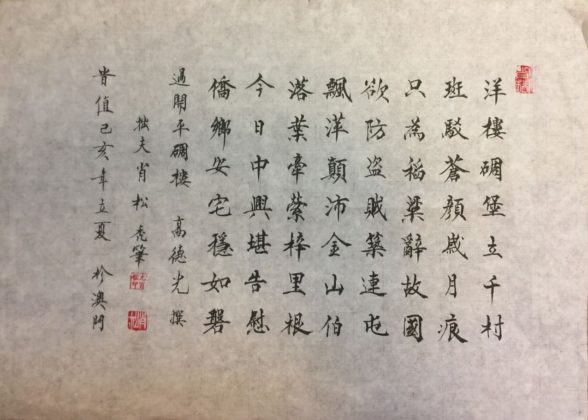 洋樓碉堡立千村
斑駁蒼顏歲月痕
只為稻粱辭故國
欲防盜賊築連屯
飄萍顛沛金山伯
落葉牽縈梓里根
今日中興堪告慰
僑鄉安宅穩如磐
過開平碉樓 高德光 撰
拙夫肖松 禿筆
時值己亥年立夏 於澳門